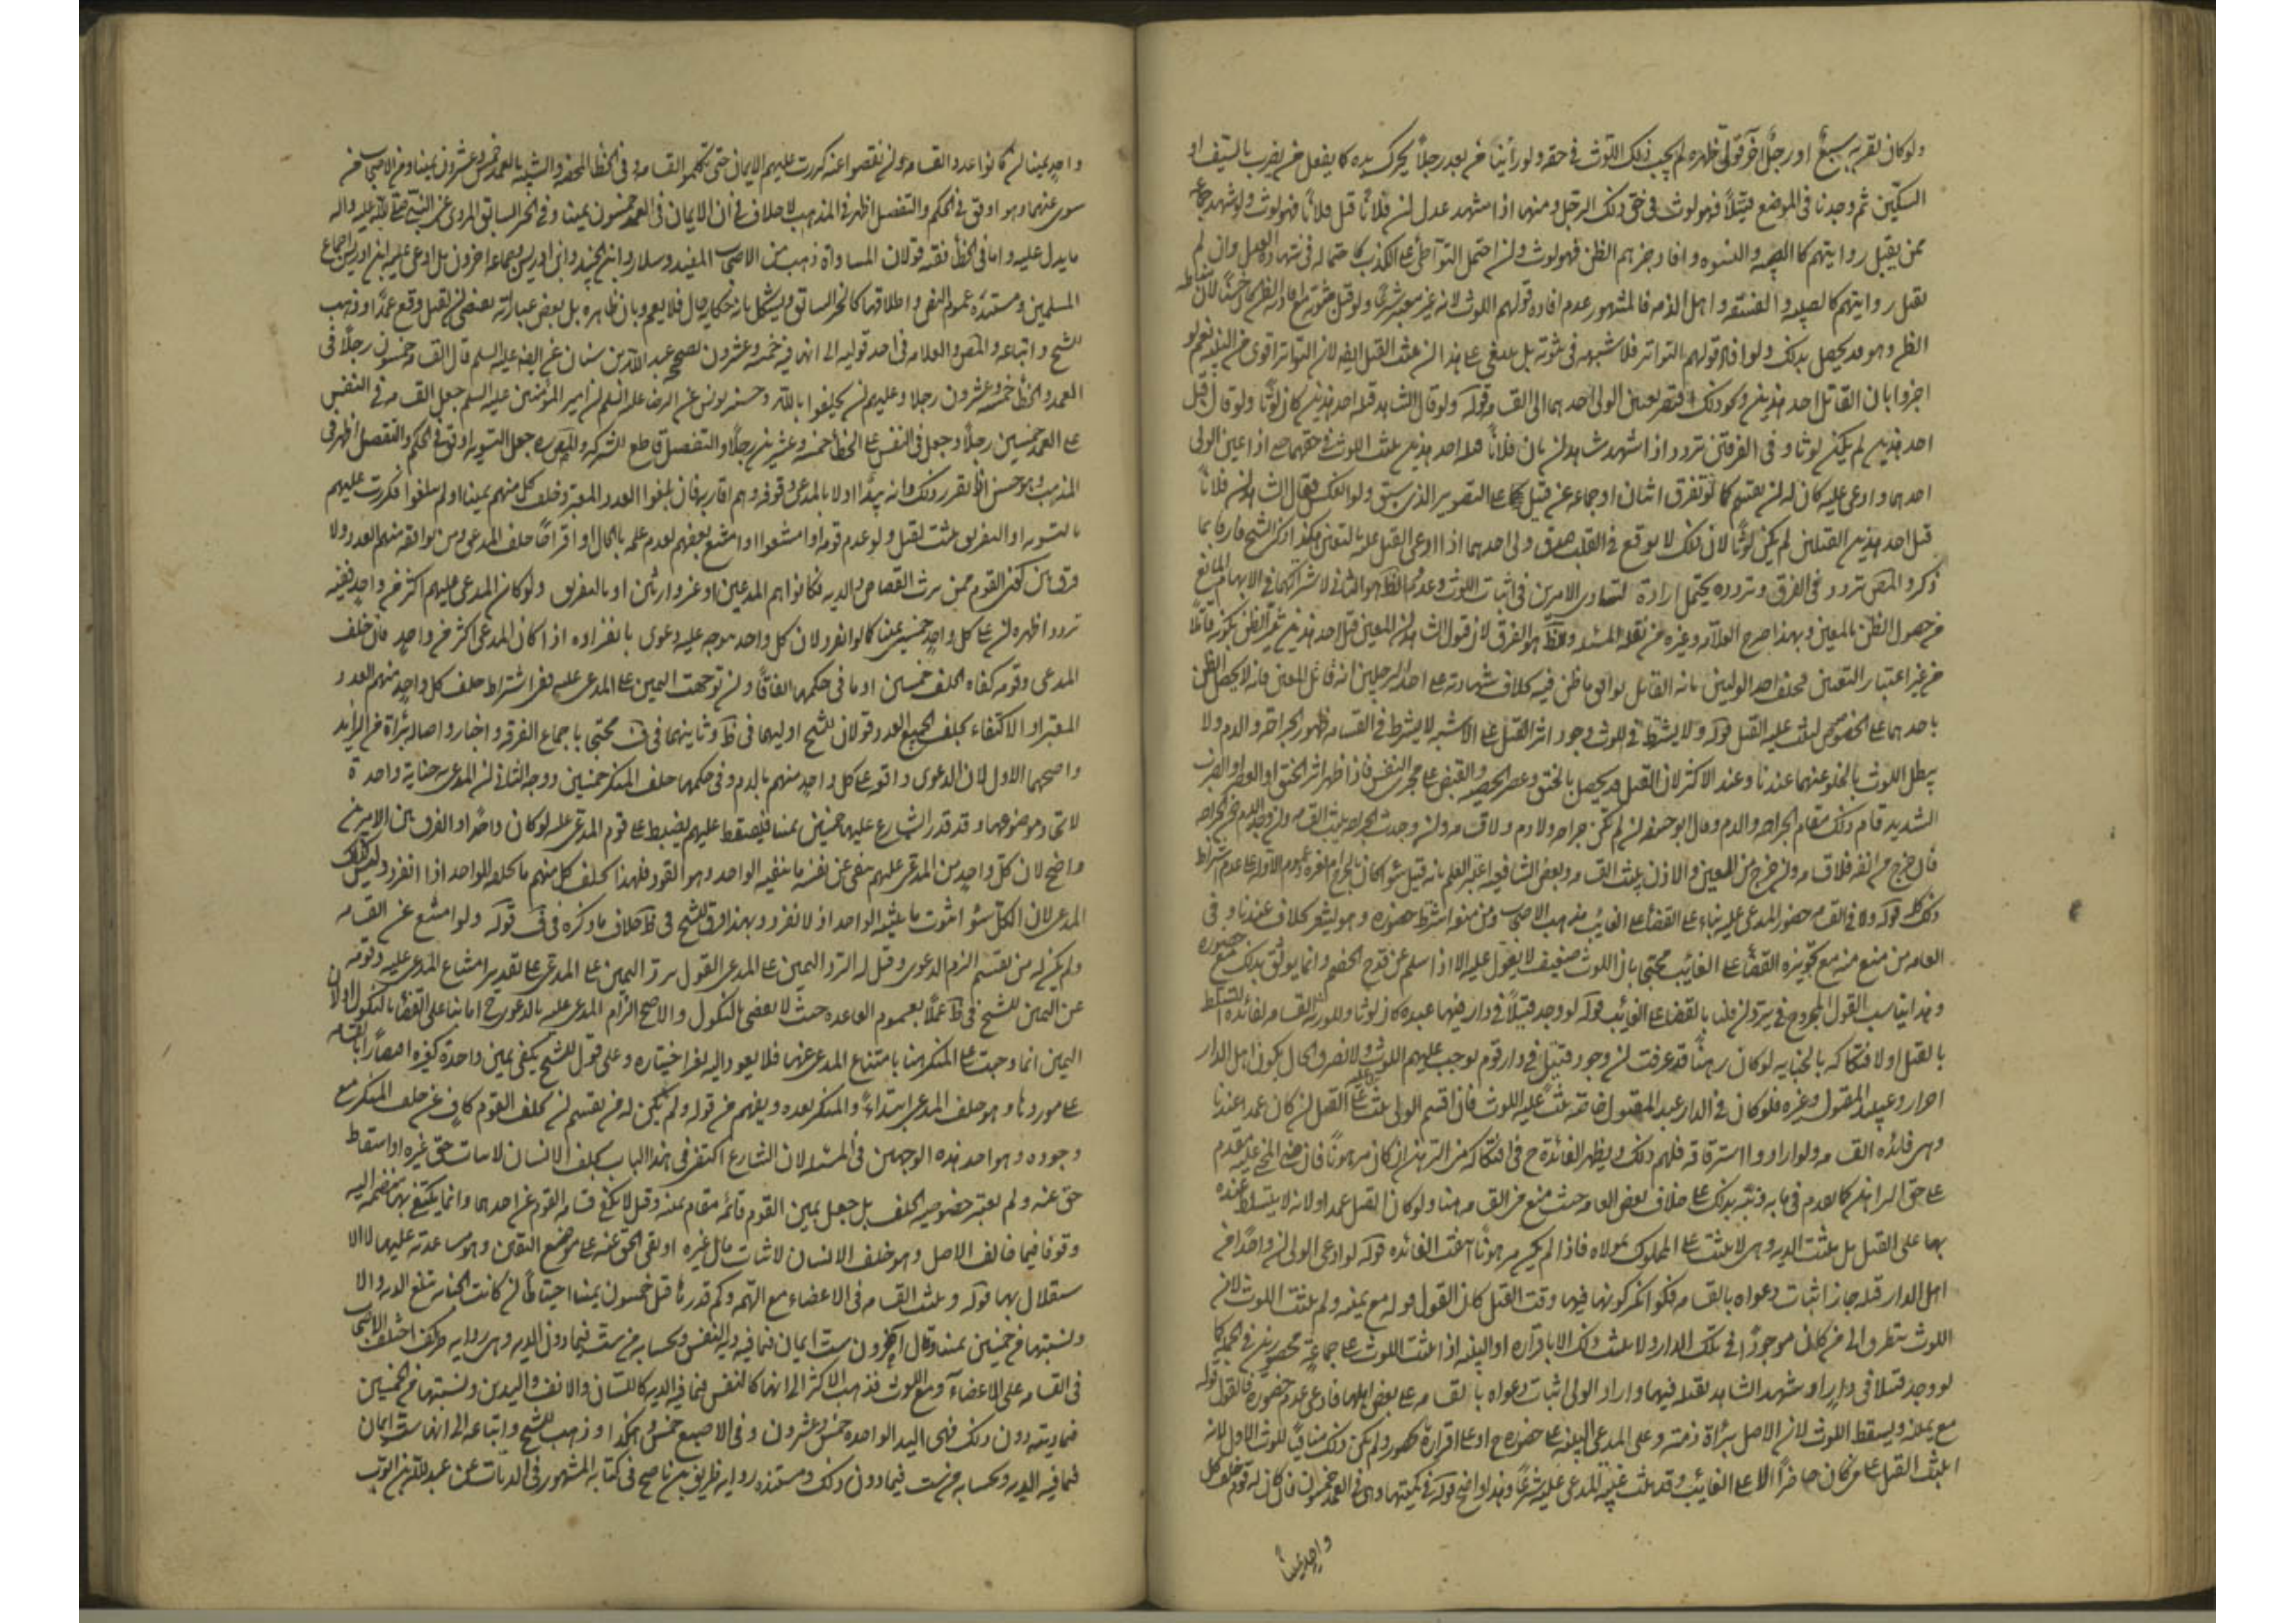 ولو كان بقربه سبع او رجل آخر مولّى ظهره لم يجب ذلك اللوث في حقه ولو رأينا من بعد رجلا يحرك يده كما يفعل من يضرب بالسيف او
السكين ثم وجدنا في الموضع قتيلا فهو لوث في حق ذلك الرجل ومنها اذا شهد عدل ان فلانا قتل فلانا فهو لوث ولو شهد جماعة
ممن يقبل روايتهم كالعبيد والنسوه وافاد خبرهم الظن فهو لوث وان احتمل التواطى على الكذب كاحتماله في شهادة العدل وان لم
يقبل روايتهم كالصبيه والفسقه واهل الذمه فالمشهور عدم افاده قولهم اللوث لانه غير معتبر شرعا ولو قيل بثبوته مع افادته الظن كان حسنا لان مناطه
الظن وهو قد يحصل بذلك ولو افاد قولهم التواتر فلا شبهه في ثبوته بل ينبغي على هذا ان يثبت القتل ايضه لان التواتر اقوى من البينه نعم لو
اخبروا بان القاتل احد هذين ونحو ذلك اقتصر تعيين الولى احدهما الى القسامه قوله ولو قال الشاهد قتله احد هذين كان لوثا ولو قال قتل
احد هذين لم يكن لوثا وفي الفرقين تردد اذا شهد شاهدان بان فلانا قتله احد هذين يثبت اللوث في حقهما حتى اذا عين الولى
احدهما وادعى عليه كان له ان يقسم كما لو تفرق اثنان او جماعه عن قتيل كما على التصوير الذي سبق ولو انعكس فقال الشاهدان فلانا
قتل احد هذين القتيلين لم يكن لوثا لان ذلك لا يوقع في القلب صدق ولى احدهما اذا ادعى القتل عليه بالتعيين هكذا ذكر الشيخ فارقا بما
ذكر والمصنف تردد في الفرق وتردده يحتمل ارادة تساوى الامرين في اثبات اللوث وعدمه والظاهر هو الثاني لاشتراكهما في الابهام المانع
من حصول الظن بالمعين وبهذا صرح العلامه وغيره ممن نقل المسئله والظاهر هو الفرق لان قول الشاهد ان المعين قتل احد هذين يثير الظن بكونه قاتلا
من غير اعتبار التعيين فحلف احد الوليين بانه القاتل يوافق ما ظن فيه بخلاف شهادته على احد الرجلين انه قاتل المعين فانه لا يحصل الظن
باحدهما على الخصوص ليثبت عليه القتل قوله ولا يشترط في اللوث وجود اثر القتل على الاشبه لا يشترط في القسامه ظهور الجراحه والدم ولا
يبطل اللوث بالخلو عنهما عندنا وعند الاكثر لان القتل قد يحصل بالخنق وعصر الخصيه والقبض على مجرى النفس فاذا ظهر اثر الخنق او العصر او الضرب
الشديد قام ذلك مقام الجراحه والدم وقال ابو حنيفه ان لم تكن جراحه ولا دم فلا قسامه وان وجدت الجراحه ثبتت القسامه وان وجد الدم دون الجراحه
فان خرج من انفه فلا قسامه وان خرج من العين والاذن يثبت القسامه وبعض الشافعيه اعتبر العلم بانه قتيل سواء كان بالجراح ام بغيره وعموم الادله على عدم اشتراط
ذلك كله قوله ولا في القسامه حضور المدعى عليه بناء على القضاء على الغايب مذهب الاصحاب ومن منعه اشترط حضوره وهو ليس بخلاف عندنا وفي
العامه من منع منه مع تجويزه القضاء على الغايب محتجا بان اللوث ضعيف لا يعوّل عليه الا اذا سلم عن قدح الخصم وانما يوثق بذلك مع حضوره
وهذا يناسب القول المرجوح في يتردد ان قلنا بالقضاء على الغايب قوله لو وجد قتيلا في دار فيها عبده كان لوثا وللورثه القسامه لفائده التسلط
بالقتل او لافتكاكه بالجنايه لو كان رهنا قد عرفت ان وجود قتيل في دار قوم يوجب عليهم اللوث ولا نصرف الحال بكون اهل الدار
احرار وعبيد المقتول وغيره فلو كان في الدار عبد المقتول خاصة يثبت عليه اللوث فان اقسم الولى يثبت عليه القتل ان كان عمدا عندنا
وهي فائده القسامه ولو ارادوا استرقاقه فلهم ذلك ويظهر الفائدة ح في افتكاكه من الرتهن ان كان مرهونا فان حق المجني عليه مقدم
على حق الراهن كما تقدم في بابه ونبّه بذلك على خلاف بعض العامه حيث منع من القسامه هنا ولو كان القتل عمدا لانه لا يتسلط عنده
بها على القتل بل يثبت الديه وهي لا يثبت على المملوك لمولاه فاذا لم يكن مرهونا انتفت الفائده قوله لو ادعى الولى ان واحدا من
اهل الدار قتله جاز اثبات دعواه بالقسامه فلو انكر كونه فيها وقت القتل كان القول قوله مع يمينه ولم يثبت اللوث لان
اللوث يتطرق الى من كان موجودا في تلك الدار ولا يثبت ذلك الا باقراره او البينه اذا يثبت اللوث على جماعة محصورين في الجملة كما
لو وجد قتيلا في دار او شهد الشاهد بقتله فيها واراد الولى اثبات دعواه بالقسامه على بعض اهلها فادعى عدم حضوره فالقول قوله
مع يمينه ويسقط اللوث لان الاصل براءة ذمته وعلى المدعى البينه على حضوره ح او على اقراره بحضوره ولم يكن ذلك منافيا للوث الاول لانه
اثبت القتل على من كان حاضرا لا على الغايب وقد يثبت غيبة المدعى عليه شرعا وهذا واضح قوله في كميتها وهي في العمد خمسون فان كان له قوم حلف كل
واحد يمينا
واحد يمينا ان كانوا عدد القسامه وان نقصوا عنه كررت عليهم الايمان حتى يكملوا القسامه وفي الخطأ المحض والشبيه بالعمد خمس وعشرون يمينا ومن الاصحاب من
سوى عنهما وهو اوفق في الحكم والتفصيل اظهر في المذهب لا خلاف في ان الايمان في العمد خمسون يمينا وفي الخبر السابق المروى عن النبي صلى الله عليه واله
ما يدل عليه واما في الخطأ ففيه قولان المساواة ذهب من الاصحاب المفيد وسلار وابن الجنيد وابن ادريس وجماعه اخرون بل ادعى عليه ابن ادريس اجماع
المسلمين ومستنده عموم النص واطلاقها كالخبر السابق ويشكل بانه حكايه حال فلا يعم وبان ظاهره بل بعض عباراته يقتضى ان القتل وقع عمدا وذهب
الشيخ واتباعه والمصنف والعلامه في احد قوليه الى انها فيه خمسه وعشرون لصحيح عبد الله بن سنان عن الصادق عليه السلم قال القسامه خمسون رجلا في
العمد والخطأ خمسة وعشرون رجلا وعليهم ان يحلفوا بالله وحسنه يونس عن الرضا عليه السلم ان امير المؤمنين عليه السلم جعل القسامه في النفس
على العمد خمسين رجلا وجعل في النفس على الخطأ خمسه وعشرين رجلا والتفصيل قاطع للشركه والمصنف ره جعل التسويه اوفق في الحكم والتفصيل اظهر في
المذهب وهو حسن اذا تقرر ذلك فانه يبدأ اولا بالمدعى وقوفه وهم اقاربه فان بلغوا العدد المعتبر وحلف كل منهم يمينا او لم يبلغوا فكررت عليهم
بالتسويه او التفريق يثبت القتل ولو عدم قومه او امتنعوا او امتنع بعضهم لعدم علمه بالحال او اقتراحا حلف المدعى ومن يوافقه منهم العدد ولا
فرق بين كون القوم ممن يرث القصاص والديه فكانوا هم المدعين او غير وارثين او بالتفريق ولو كان المدعى عليهم اكثر من واحد ففيه
تردد اظهره ان على كل واحد خمسين يمينا كما لو انفرد لان كل واحد موجه عليه دعوى بانفراده اذا كان المدعى اكثر من واحد فان حلف
المدعى وقومه كفاه الحلف خمسين او ما في حكمها اتفاقا وان توجهت اليمين على المدعى عليه ففي اشتراط حلف كل واحد منهم العدد
المعتبر او الاكتفاء بحلف الجميع العدد قولان للشيخ اوليهما في ط وثانيهما في ف محتجا باجماع الفرقه واخبار واصاله براءة من الزايد
واصحهما الاول لان الدعوى واقعه على كل واحد منهم بالدم وفي حكمها حلف المنكر خمسين ووجه الثاني ان المدعى به جناية واحدة
لاتحاد موضوعها وقد قدر الشارع عليها خمسين يمينا فيقسط عليهم يضبط على قوم المدعى عليه لو كان واحدا والفرق بين الامرين
واضح لان كل واحد من المدعى عليهم ينفي عن نفسه ما ينفيه الواحد وهو القود فلهذا يحلف كل منهم ما يحلفه الواحد اذا انفرد وليس كذلك
المدعى لان الكل سواء في ثبوت ما يثبته الواحد اذ لا انفرد وبهذا فرق الشيخ في ط خلاف ما ذكره في ف قوله ولو امتنع عن القسامه
ولم يكن له من يقسم الزم الدعوى وقيل له الرد اليمين على المدعى القول برد اليمين على المدعى على تقدير امتناع المدعى عليه وقومه
عن اليمين للشيخ في ط عملا بعموم القاعده حيث لا يقضى بالنكول والاصح الزام المدعى عليه بالدعوى ح اما بناء على القضاء بالنكول او لان
اليمين انما وجبت على المنكر هنا بامتناع المدعى عنها فلا يعود اليه بغير اختياره وعلى قول الشيخ يكفي يمين واحدة كغيره اقتصارا بالقسامه
على موردها وهو حلف المدعى ابتداءً والمنكر بعده ويفهم من قوله ولم يكن له من يقسم ان يحلف القوم كاف عن حلف المنكر مع
وجوده وهو احد هذه الوجهين في المسئله لان الشارع اكتفى في هذا الباب بحلف الانسان لاثبات حق غيره او اسقاط
حق عنه ولم يعتبر خصوصيه الحلف بل جعل يمين القوم قائمه مقام يمينه وقيل لا يكفى قسامه القوم عن احدهما وانما يكتفى بها منضمه اليه
وقوفا فيما خالف الاصل وهو حلف الانسان لاثبات مال غيره او نفي الحق عنه على موضع اليقين وهو مساعدته عليهما لا الا
ستقلال بها قوله ويثبت القسامه في الاعضاء مع التهمه وكم قدرها قيل خمسون يمينا احتياطا ان كانت الجنايه تبلغ الديه والا
ونسبتها من خمسين يمينا وقال آخرون ست ايمان فيما فيه دية النفس وبحسابه من ست فيما دون الديه وهي روايه ظريف اختلف الاصحاب
في القسامه على الاعضاء مع اللوث فذهب الاكثر الى انها كالنفس فيما فيه الديه كاللسان والانف واليدين ونسبتها من الخمسين
فيما ديته دون ذلك ففي اليد الواحده خمس وعشرون وفي الاصبع خمس وهكذا وذهب الشيخ واتباعه الى انها ست ايمان
فيما فيه الديه وبحسابه من ست فيما دون ذلك ومستنده روايه ظريف بن ناصح في كتابه المشهور في الديات عن عبد الله بن ايوب